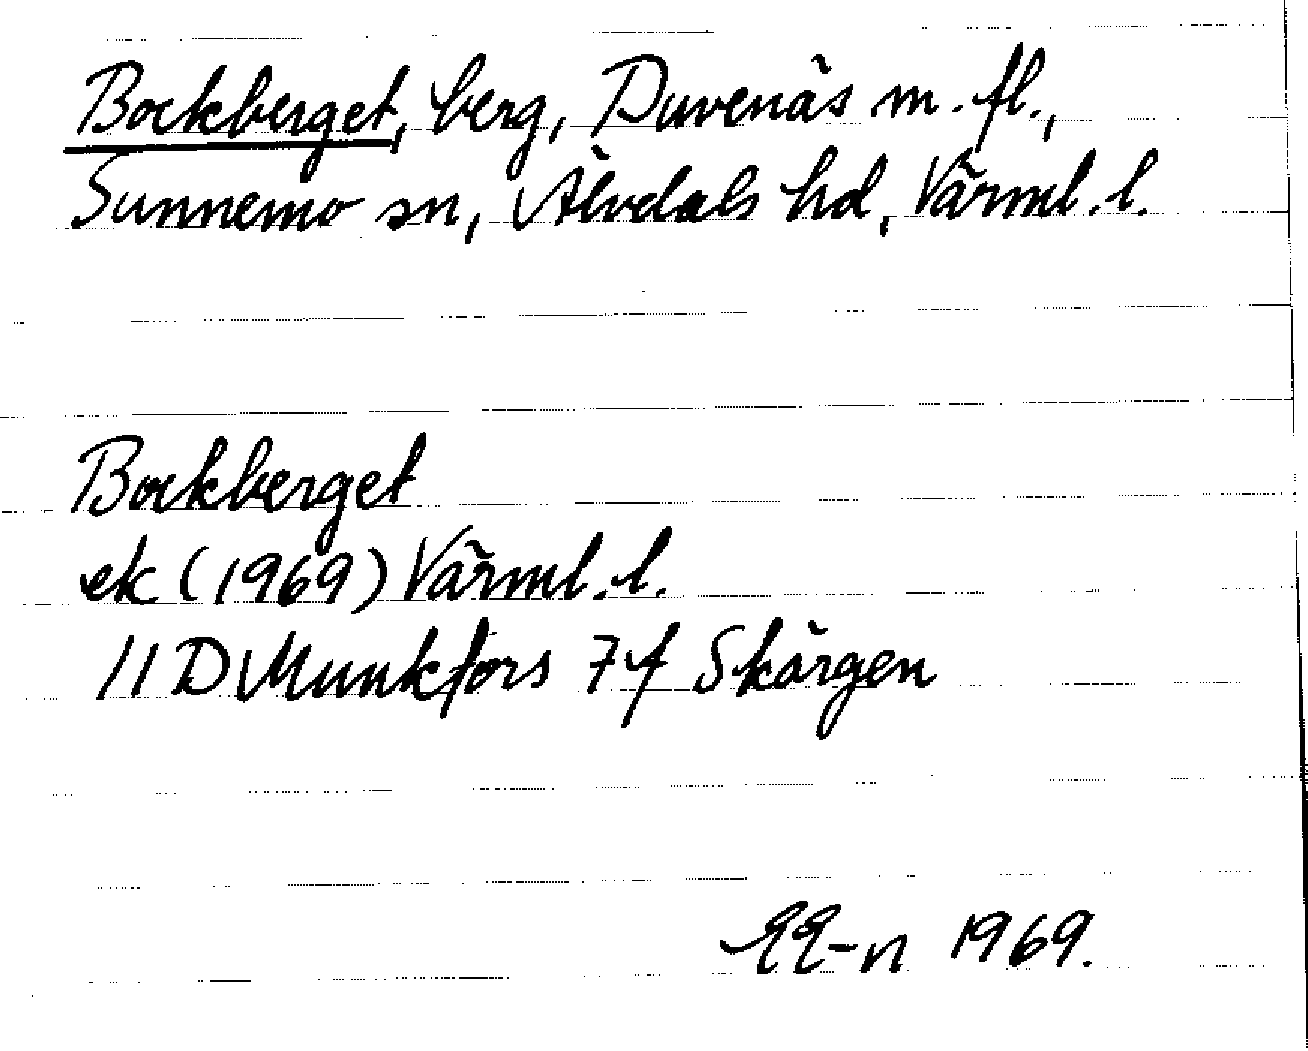 Bockberget, berg, Duvenäs m. fl.,
Sunnemo sn, Älvdals hd, Värml. l.
Bockberget
ek (1969) Värml. l.
11 D Munkfors 7f Skärgen
EE-n 1969.